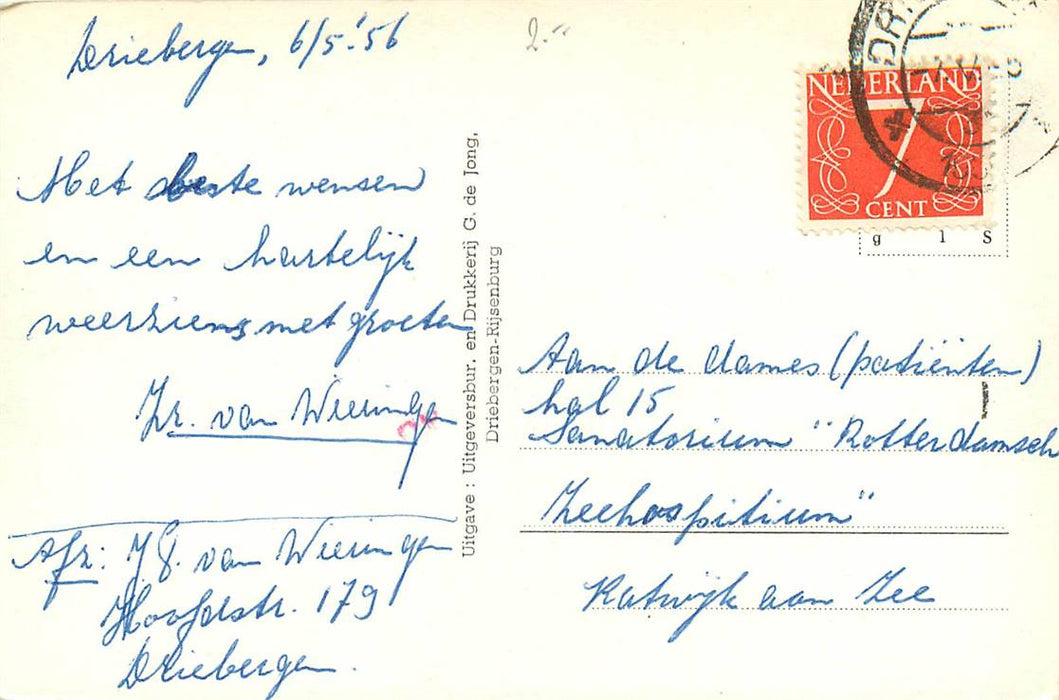 Driebergen, 6/5.'56
2.-"
Met beste wensen
en een hartelijk
weerziens met groeten
Zr. van Wieringen
Afz: J G. van Wieringen
Hoofdstr. 179
Driebergen.
Uitgave : Uitgeversbur. en Drukkerij G. de Jong,
Driebergen-Rijsenburg
NEDERLAND
7
CENT
g l S
Aan de dames (patiënten)
hal 15
Sanatorium "Rotterdamsch
Zeehospitium"
Katwijk aan Zee